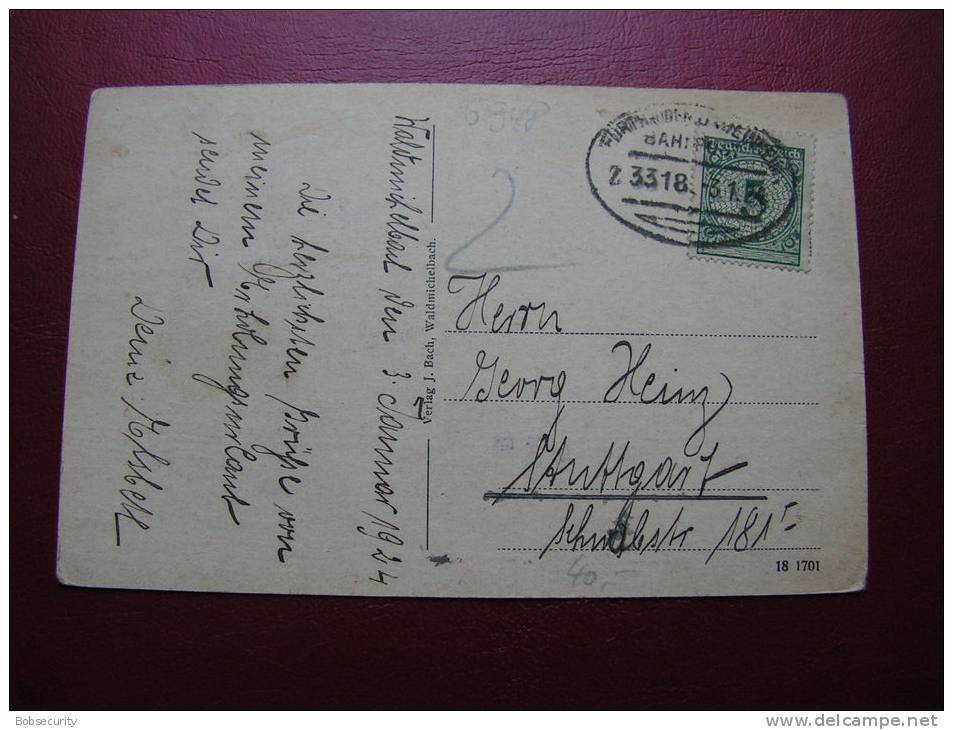 Waldmichelbach den 3. Januar 1924
Die herzlichsten Grüße von
meinem Erholungsurlaub
sendet Dir
Deine
Verlag J. Bach, Waldmichelbach.
2
BAHNPOST
Z 3318 3.1.
5
Herrn
Georg Heinz
Stuttgart
Schwabstr 181 I
40,-
18 1701
Bobsecurity
www.delcampe.net